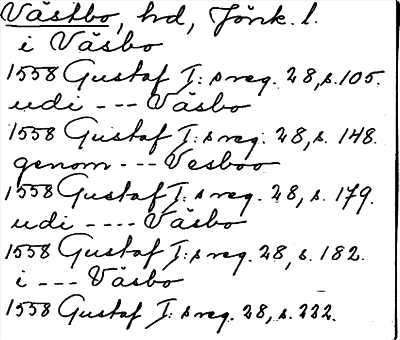 Västbo, hd, Jönk. l.
i Väsbo
1558 Gustaf I: s reg. 28, s. 105.
udi --- Väsbo
1558 Gustaf I: s reg. 28, s. 148.
genom --- Vesboo
1558 Gustaf I: s reg. 28, s. 179.
udi ---- Väsbo
1558 Gustaf I: s reg. 28, s. 182.
i --- Väsbo
1558 Gustaf I: s reg. 28, s. 222.